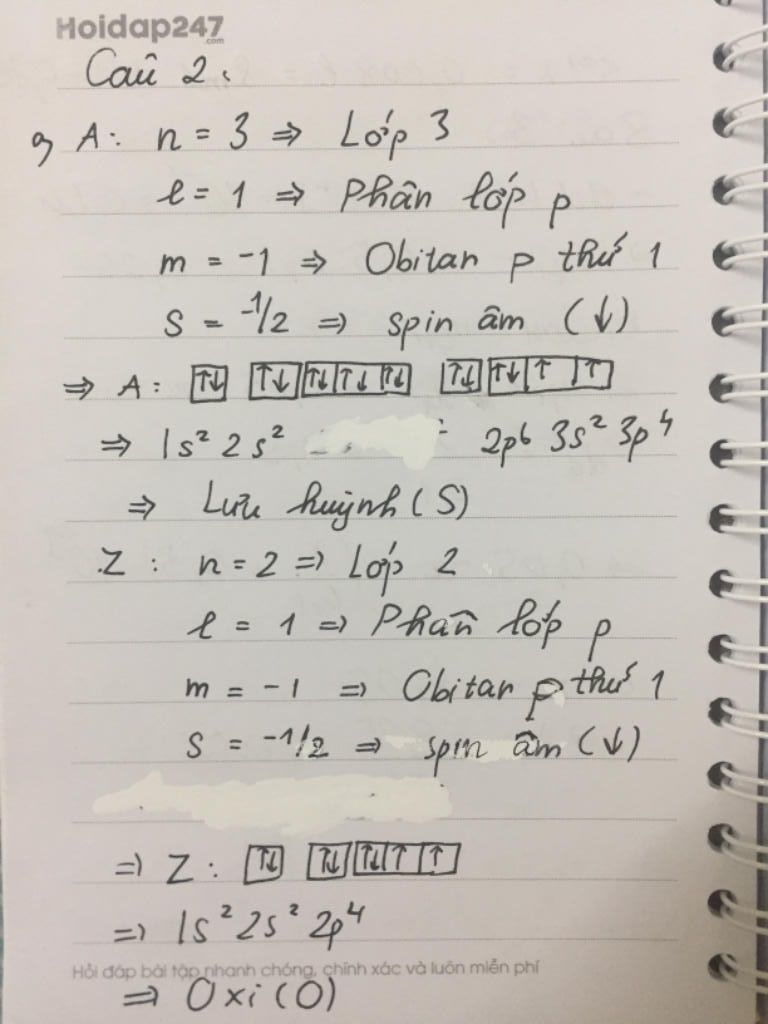 Hoidap247
.com
Câu 2:
a, A: n = 3 => Lớp 3
l = 1 => Phân lớp p
m = -1 => Obitan p thứ 1
S = -1/2 => spin âm (↓)
=> A: [↑↓] [↑↓] [↑↓|↑↓|↑↓] [↑↓] [↑↓|↑|↑]
=> 1s² 2s² 2p⁶ 3s² 3p⁴
=> Lưu huỳnh (S)
Z: n = 2 => Lớp 2
l = 1 => Phân lớp p
m = -1 => Obitan p thứ 1
S = -1/2 => spin âm (↓)
=> Z: [↑↓] [↑↓] [↑↓|↑|↑]
=> 1s² 2s² 2p⁴
Hỏi đáp bài tập nhanh chóng, chính xác và luôn miễn phí
=> Oxi (O)